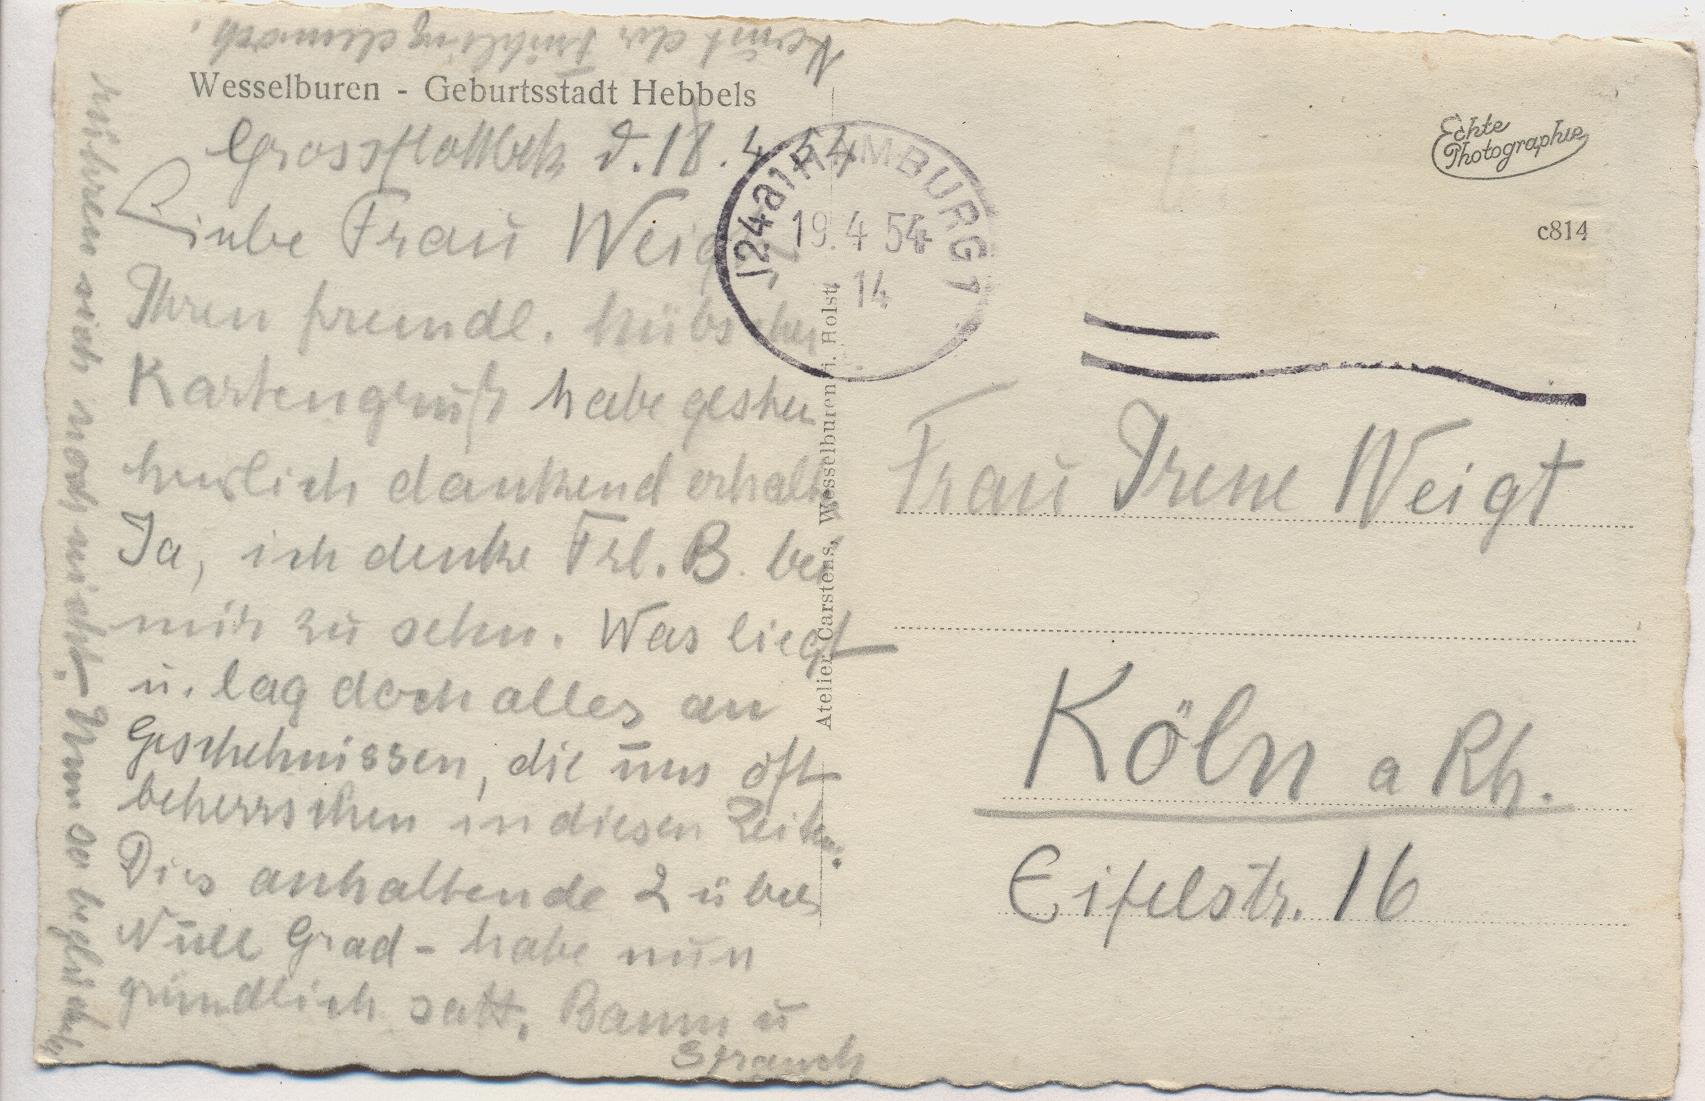 Wesselburen - Geburtsstadt Hebbels
Grossflottbek d. 18.4.54
Liebe Frau Weigt
Ihren freundl. hübschen
Kartengruß habe gestern
herzlich dankend erhalten
Ja, ich denke Frl. B. bei
mir zu sehn. Was liegt
u. lag doch alles an
Geschehnissen, die uns oft
beherrschen in diesen Zeiten.
Dies anhaltende 2 über
Null Grad - habe nun
gründlich satt. Baum u
Strauch
rühren sich noch nicht. Um so beglückender
kommt der Frühling dennoch.
Atelier Carstens, Wesselburen i. Holst.
J24a1 HAMBURG 1
19.4.54
14
Echte
Photographie
c814
Frau Irene Weigt
Köln a Rh.
Eifelstr. 16